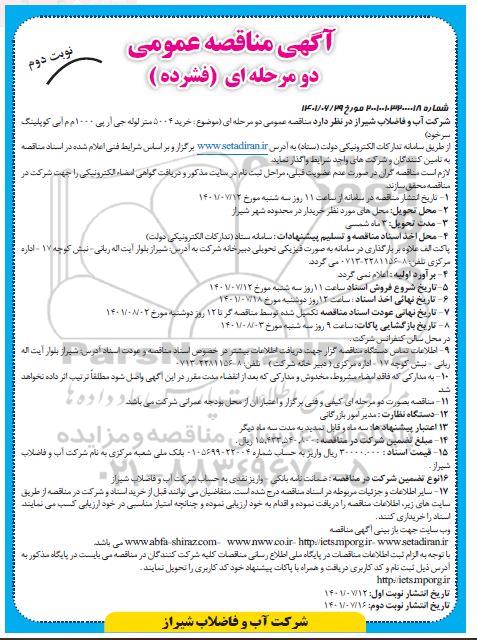 آگهی مناقصه عمومی
دو مرحله ای (فشرده)
نوبت دوم
شماره ۲۰۰۱۰۰۱۰۳۲۰۰۰۰۱۸ مورخ ۱۴۰۱/۰۶/۲۹
شرکت آب و فاضلاب شیراز در نظر دارد مناقصه عمومی دو مرحله ای (موضوع : خرید ۵۰۰۴ متر لوله جی آر پی ۱۰۰۰ م م آبی کوپلینگ
سرخود)
از طریق سامانه تدارکات الکترونیکی دولت (ستاد) به آدرس www.setadiran.ir برگزار و بر اساس شرایط فنی اعلام شده در اسناد مناقصه
به تامین کنندگان و شرکت های واجد شرایط واگذار نماید.
لازم است مناقصه گران در صورت عدم عضویت قبلی، مراحل ثبت نام در سایت مذکور و دریافت گواهی امضاء الکترونیکی را جهت شرکت در
مناقصه محقق سازند.
۱- تاریخ انتشار مناقصه در سامانه از ساعت ۱۱ روز سه شنبه مورخ ۱۴۰۱/۰۷/۱۲
۲- محل تحویل: محل های مورد نظر خریدار در محدوده شهر شیراز
۳- مدت تحویل: ۳ ماه شمسی
۴- محل اخذ اسناد مناقصه و تسلیم پیشنهادات : سامانه ستاد (تدارکات الکترونیکی دولت)
پاکت الف علاوه بر بارگذاری در سامانه به صورت فیزیکی تحویلی دبیرخانه شرکت به آدرس: شیراز بلوار آیت اله ربانی - نبش کوچه ۱۷ - اداره
مرکزی تلفن: ۸-۳۲۲۸۱۱۵۶-۰۷۱ می گردد.
۴- برآورد اولیه : اعلام نمی گردد.
۵- تاریخ شروع فروش اسناد ساعت ۱۱ روز سه شنبه مورخ ۱۴۰۱/۰۷/۱۲
۶- تاریخ نهائی اخذ اسناد : ساعت ۱۲ روز دوشنبه مورخ ۱۴۰۱/۰۷/۱۸
۷- تاریخ نهائی عودت اسناد مناقصه تکمیل شده توسط مناقصه گر تا ۱۲ روز دوشنبه مورخ ۱۴۰۱/۰۸/۰۲
۸- تاریخ بازگشایی پاکات: ساعت ۹ روز سه شنبه مورخ ۱۴۰۱/۰۸/۰۳
در محل سالن کنفرانس شرکت .
۹- اطلاعات تماس دستگاه مناقصه گزار جهت دریافت اطلاعات بیشتر در خصوص اسناد مناقصه و عودت اسناد آدرس: شیراز بلوار آیت اله
ربانی - نبش کوچه ۱۷ - اداره مرکزی ( دبیر خانه شرکت ) - تلفن: ۸-۳۲۲۸۱۱۵۶-۰۷۱
۱۰- به مدارکی که فاقد امضاء مشروط، مخدوش و مدارکی که بعد از انقضاء مدت مقرر در این آگهی واصل شود مطلقاً ترتیب اثر داده نخواهد
شد.
۱۱- مناقصه بصورت دو مرحله ای کیفی و فنی برگزار و اعتبار آن از محل بودجه عمرانی شرکت می باشد.
۱۲- دستگاه نظارت : مدیر امور بازرگانی
۱۳ اعتبار پیشنهاد ها: سه ماه و قابل تمدید به مدت سه ماه دیگر
۱۴- مبلغ تضمین شرکت در مناقصه : ۱۵,۴۳۳,۵۴۰,۸۰۰ ریال .
۱۵- قیمت اسناد : ۳۰۰۰۰.۰۰۰ ریال واریز به حساب شماره ۰۱۰۵۶۹۹۰۲۲۰۰۴ بانک ملی شعبه مرکزی به نام شرکت آب و فاضلاب
شیراز .
۱۶ نوع تضمین شرکت در مناقصه : ضمانت نامه بانکی - واریز نقدی به حساب شرکت آب و فاضلاب شیراز
۱۷- سایر اطلاعات و جزئیات مربوطه در اسناد مناقصه درج شده است. متقاضیان می توانند قبل از خرید اسناد و شرکت در مناقصه از طریق
سایت های زیر، اطلاعات مناقصه را دریافت نموده و اقدام به خود ارزیابی نموده و چنانچه امتیاز مناسبی در خود ارزیابی کسب می نمایند.
اسناد را خریداری کنند.
وب سایت جهت باز بینی آگهی مناقصه
www.abfa-shiraz.com- www.nww.co.ir- http://iets.mporg.ir- www.setadiran.ir می باشد.
با توجه به الزام ثبت اطلاعات مناقصات در پایگاه ملی اطلاع رسانی مناقصات کلیه شرکت کنندگان در مناقصه می بایست در پایگاه مذکور به
آدرس ذیل ثبت نام و کد کاربری دریافت و همراه با پاکات پیشنهاد خود کد کاربری را تحویل نمایند .
http://iets.mporg.ir
تاریخ انتشار نوبت اول: ۱۴۰۱/۰۷/۱۲
تاریخ انتشار نوبت دوم: ۱۴۰۱/۰۷/۱۶
شرکت آب و فاضلاب شیراز